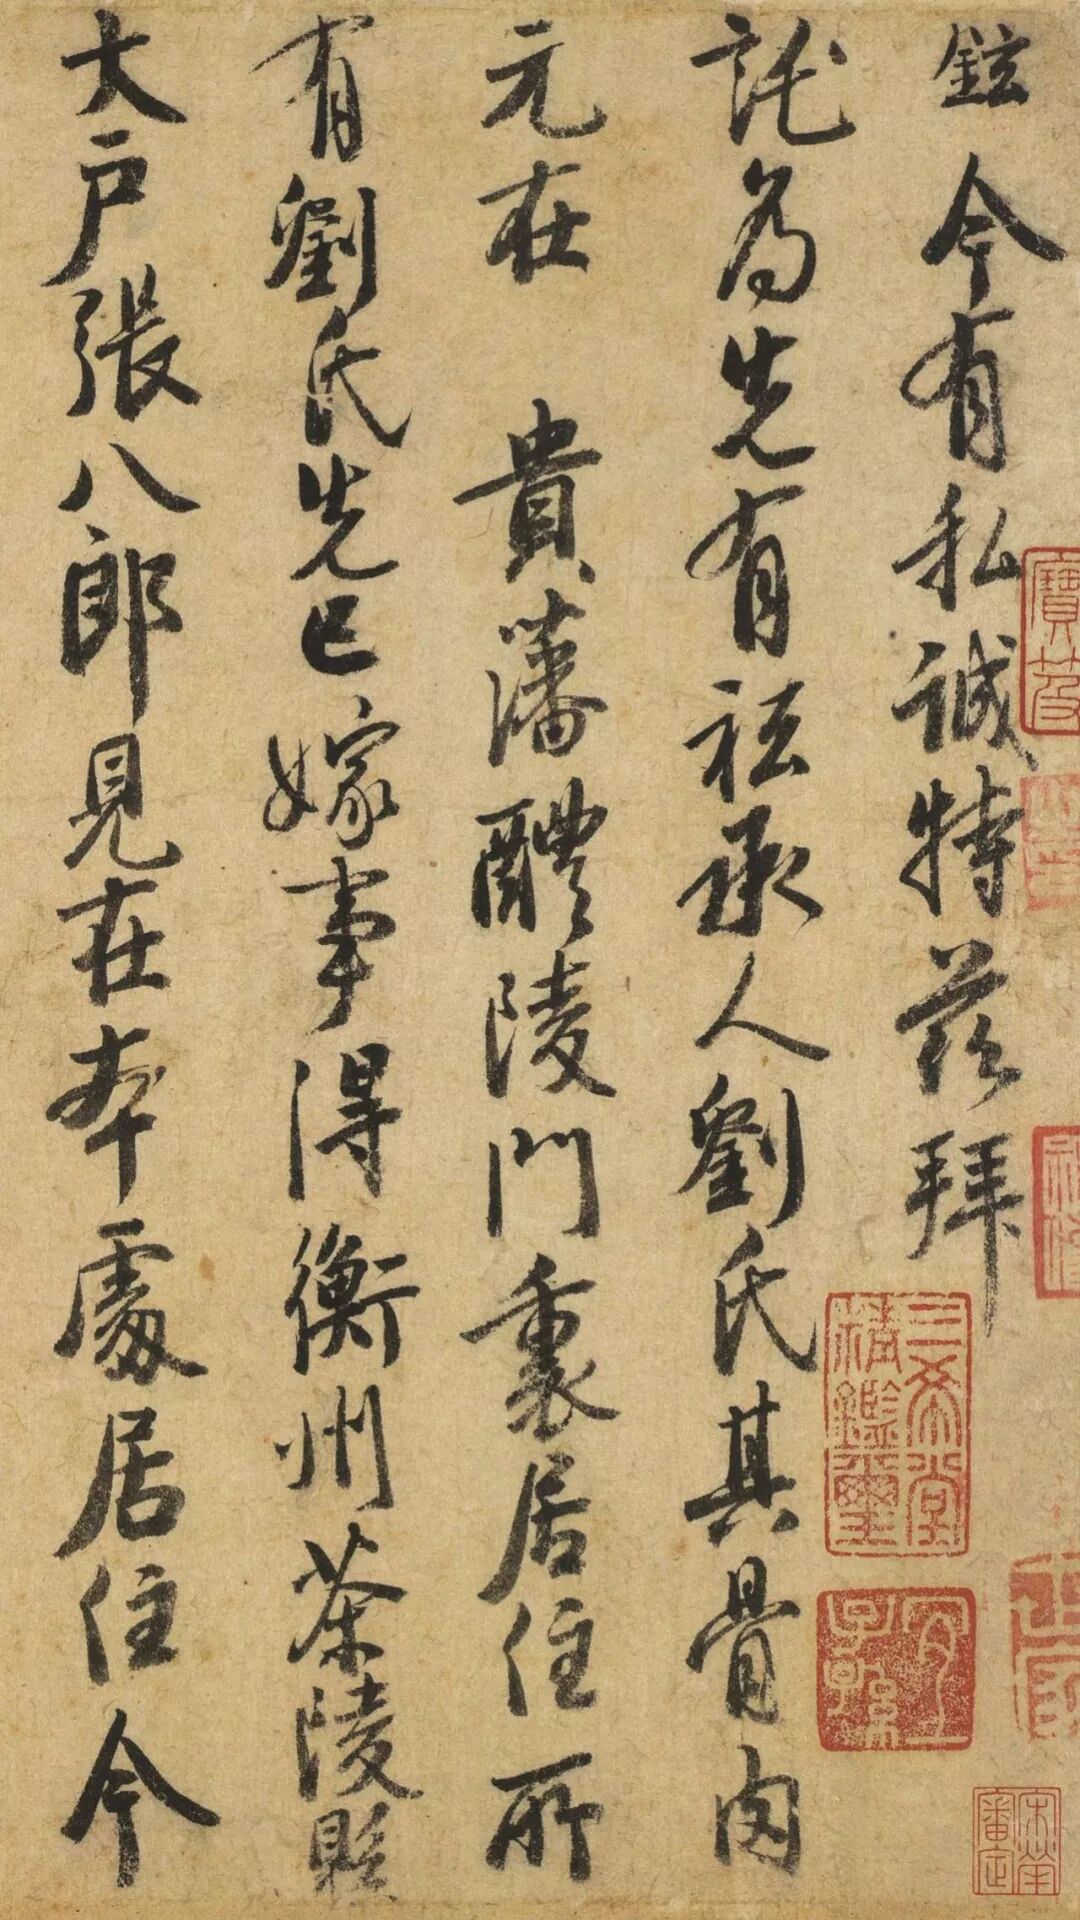 鉉今有私誠特茲拜
託為先有祗承人劉氏其骨肉
元在 貴藩醴陵門裏居住所
有劉氏先已嫁事得衡州茶陵縣
大戶張八郎見在本處居住今
三希堂
精鑑璽
宜
子孫
宋犖
審定